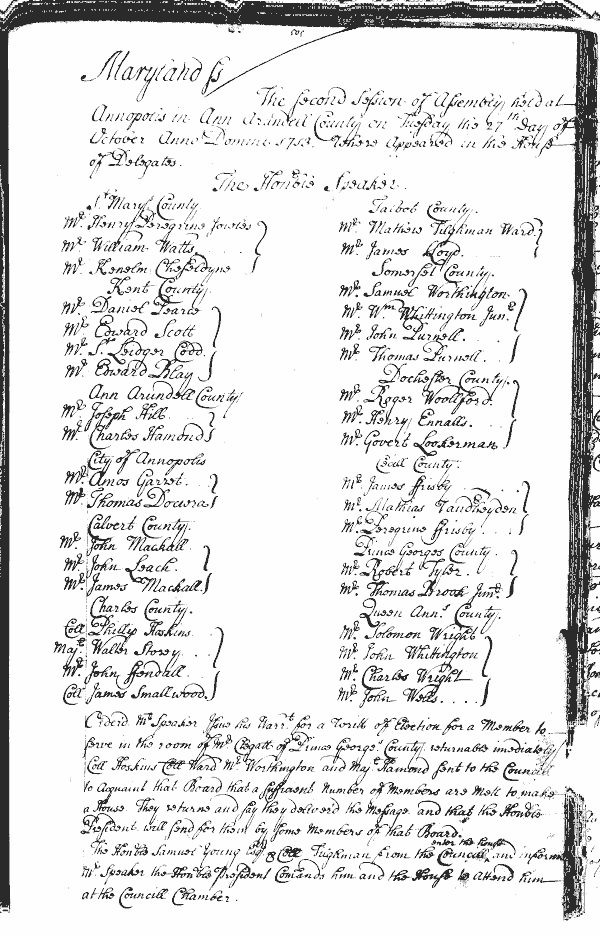 Maryland ss
The Second Session of Assembly held at
Annopolis in Ann Arundell County on Tuesday the 27th Day of
October Anno Domini 1713. Where Appeared in the House
of Delegates.
The Honble Speaker.
St Marys County.
Mr. Henry Peregrine Jowles
Mr. William Watts
Mr. Kenelm Cheseldyne
Kent County.
Mr. Daniel Pearce
Mr. Edward Scott
Mr. St Leidger Codd.
Mr. Edward Blay
Ann Arundell County
Mr. Joseph Hill.
Mr. Charles Hamond
City of Annopolis
Mr. Amos Garret.
Mr. Thomas Docwra
Calvert County.
Mr. John Mackall.
Mr. John Leach.
Mr. James Mackall.
Charles County.
Coll Phillip Hoskins.
Majr. Walter Storey.
Mr. John Fendall.
Coll James Smallwood.
Talbot County.
Mr. Mathew Tilghman Ward.
Mr. James Lloyd.
Somerset County.
Mr. Samuel Worthington.
Mr. Wm Whittington Junr.
Mr. John Purnell.
Mr. Thomas Purnell.
Dochester County.
Mr. Roger Woollford.
Mr. Henry Ennalls.
Mr. Govert Lookerman
Cecill County.
Mr. James ffrisby
Mr. Mathias Vandheyden
Mr. Peregrine ffrisby
Prince Georges County.
Mr. Robert Tyler.
Mr. Thomas Brook Junr.
Queen Anns County.
Mr. Solomon Wright
Mr. John Whitington
Mr. Charles Wright
Mr. John Wells
Orderd Mr Speaker Issue his Warrt for a Writt of Election for a Member to
serve in the room of Mr Clegatt of Prince Georges County returnable imediately
Coll Hoskins Coll Ward Mr Worthington and Majr Hamond sent to the Councill
to Aquaint that Board that a suffiscent Number of Members are mett to make
a House. They returne and say they deliverd the Message and that the Honble
President will send for them by some Members of that Board.
The Honble Samuel Young Esqr & Coll Tilghman from the Councill enter the house and informs
Mr Speaker the Honble President Comands him and the House to Attend him
at the Councill Chamber.